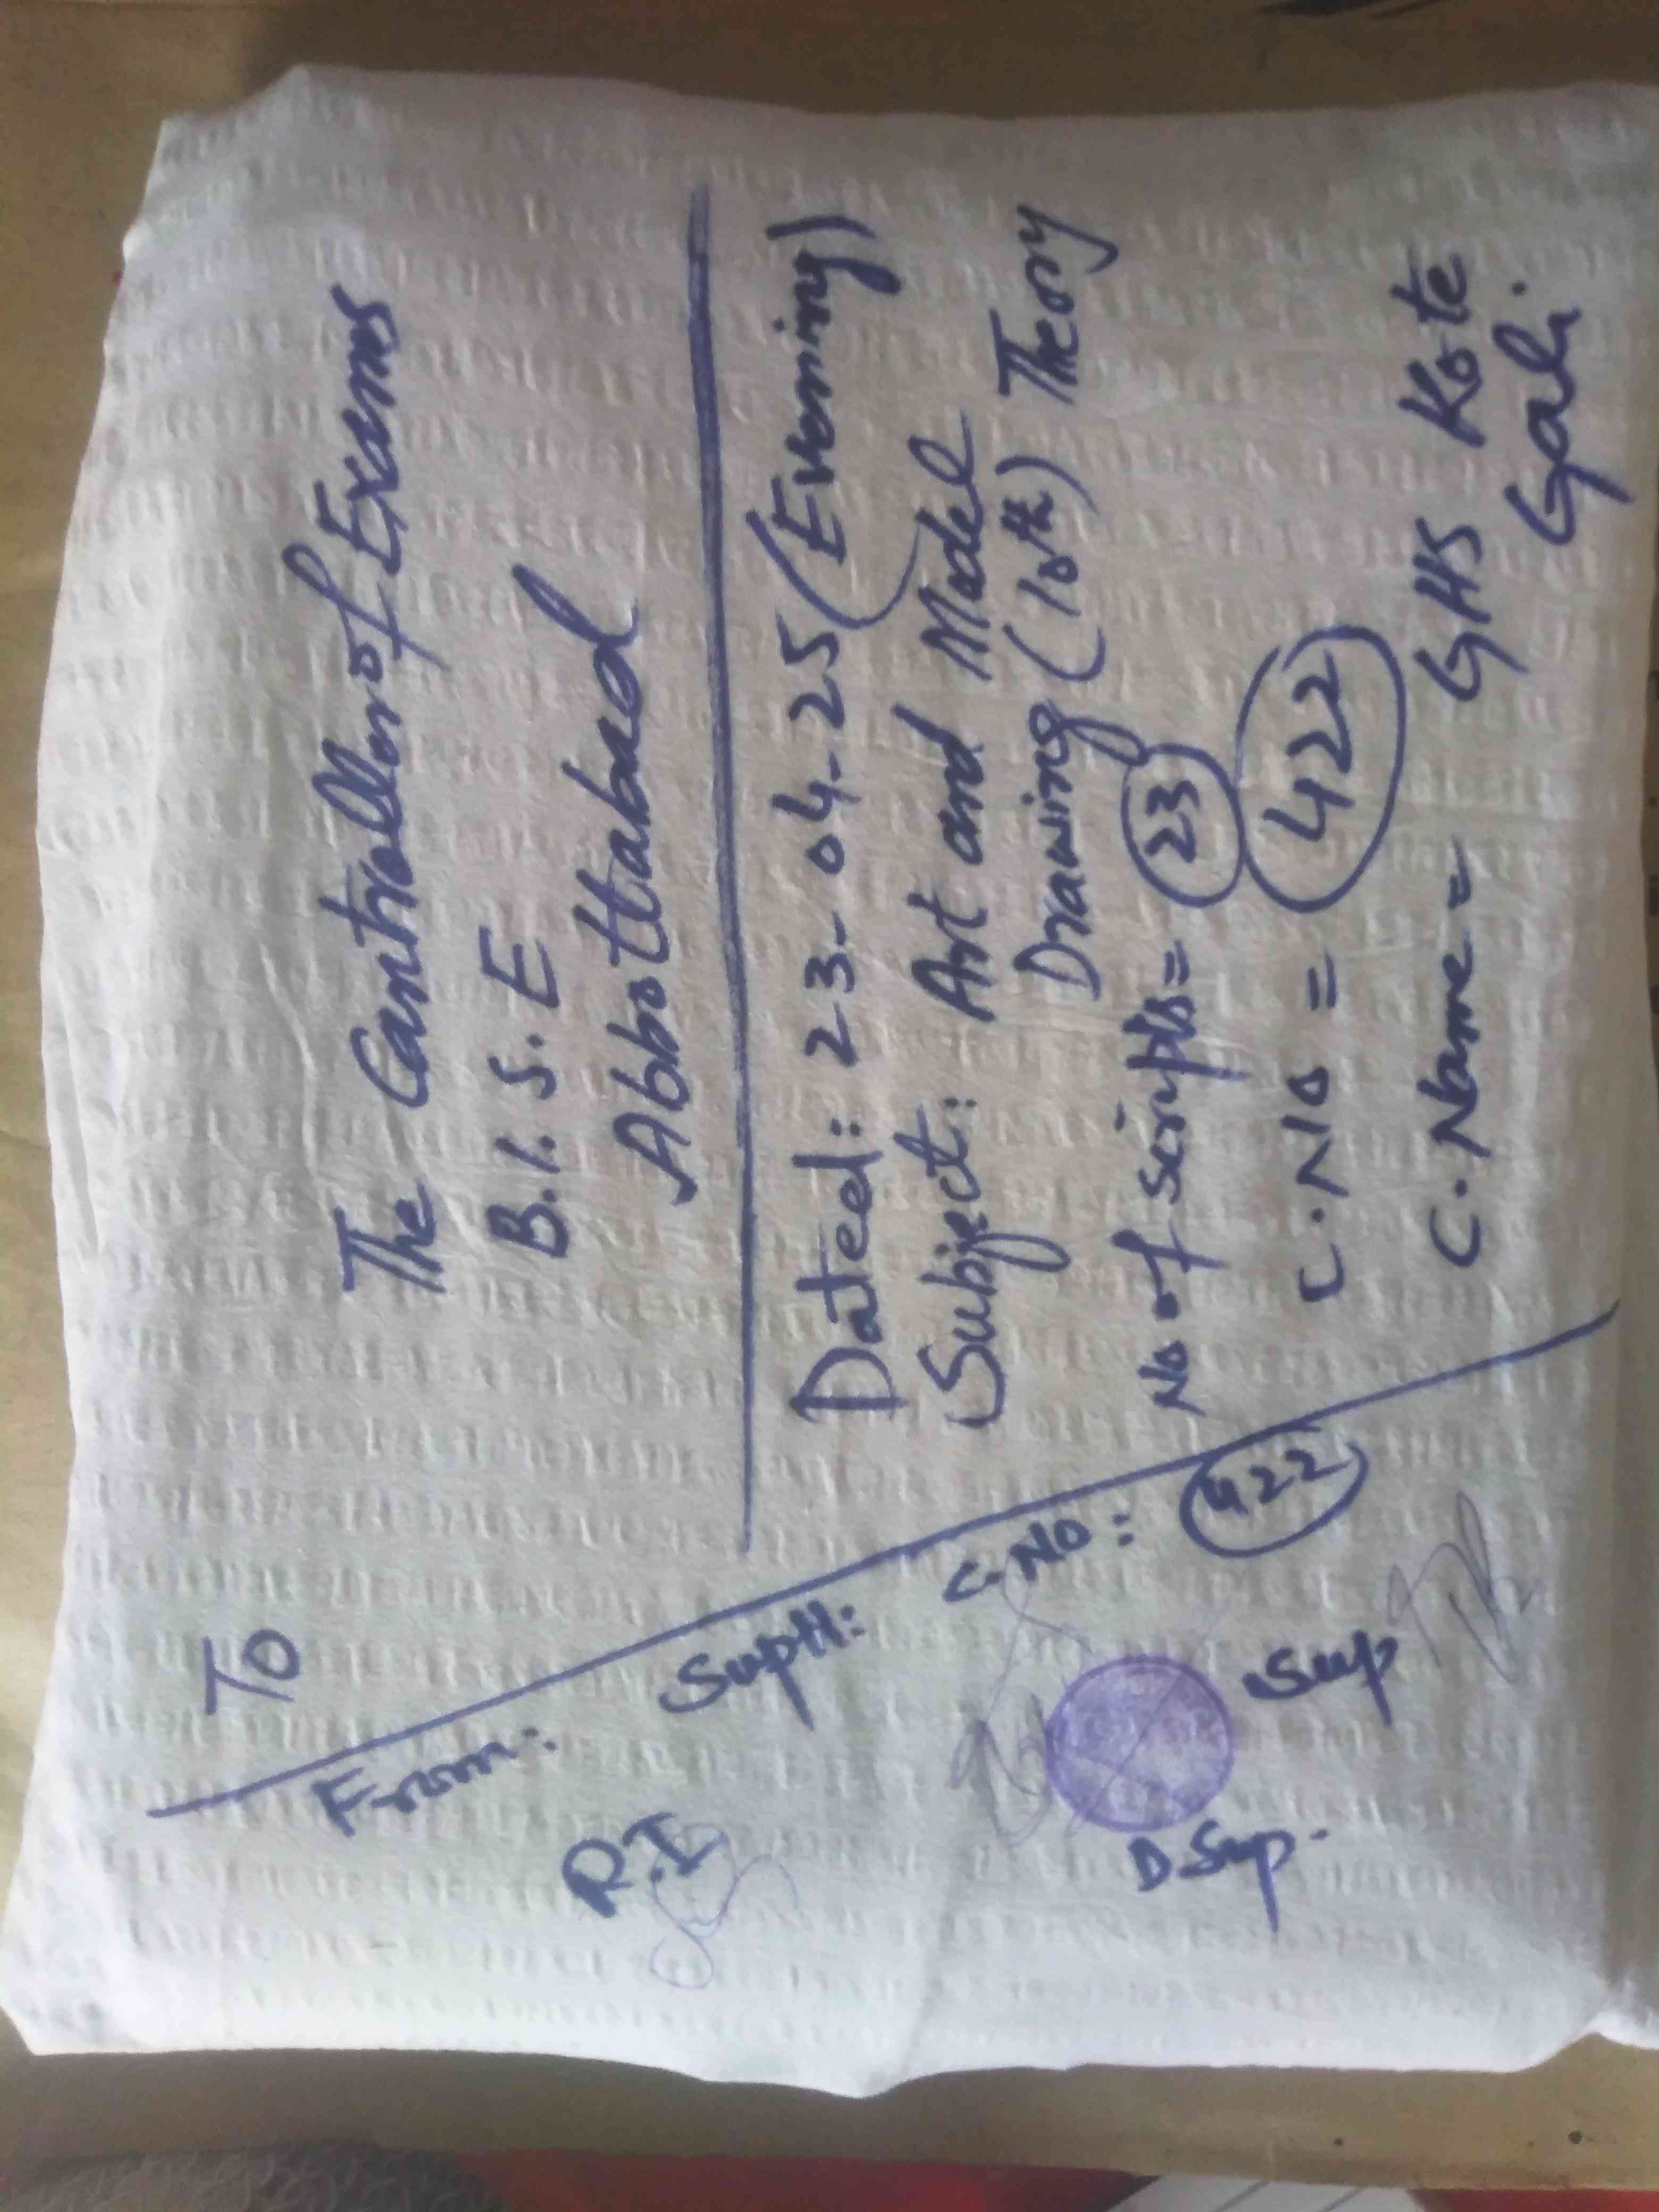 To
The Controller of Exams
B.I.S.E
Abbottabad
Dated: 23-04-25 (Evening)
Subject: Art and Model
Drawing (10th) Theory
No of scripts= 23
C.No = 422
C.Name= GHS Kote
Gali.
From:
Suptt:
C.No: 422
R.I
D.Sup.
Sup